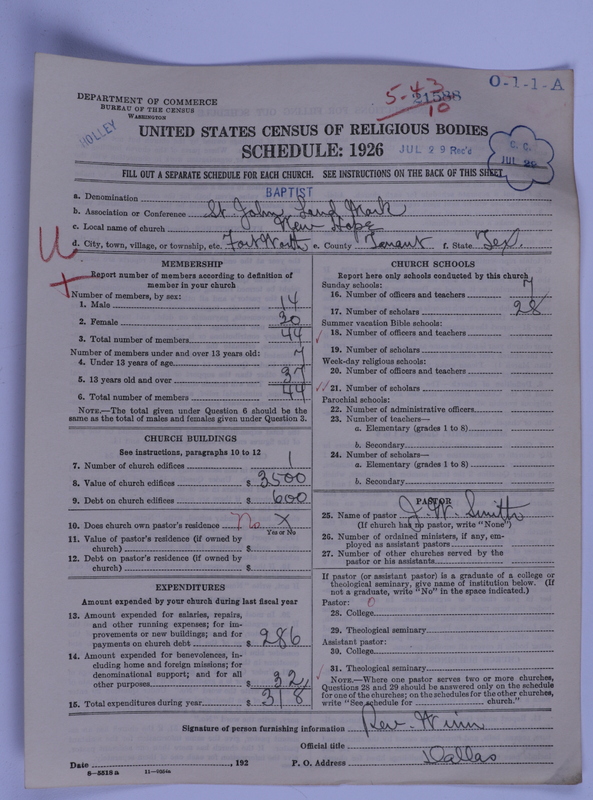 O-1-1-A
5-43
21588
10
DEPARTMENT OF COMMERCE
BUREAU OF THE CENSUS
WASHINGTON
HOLLEY
UNITED STATES CENSUS OF RELIGIOUS BODIES
SCHEDULE: 1926
JUL 29 Rec'd
C. C.
JUL 29
FILL OUT A SEPARATE SCHEDULE FOR EACH CHURCH. SEE INSTRUCTIONS ON THE BACK OF THIS SHEET
a. Denomination BAPTIST
b. Association or Conference St. John Land Mark
c. Local name of church New Hope
d. City, town, village, or township, etc. Fort Worth e. County Tarrant f. State Tex.
U
+
MEMBERSHIP
Report number of members according to definition of
member in your church
Number of members, by sex:
1. Male 14
2. Female 30
3. Total number of members 44
Number of members under and over 13 years old:
4. Under 13 years of age 7
5. 13 years old and over 37
6. Total number of members 44
NOTE.—The total given under Question 6 should be the
same as the total of males and females given under Question 3.
CHURCH BUILDINGS
See instructions, paragraphs 10 to 12
7. Number of church edifices 1
8. Value of church edifices $ 3500
9. Debt on church edifices $ 600
10. Does church own pastor's residence No X
Yes or No
11. Value of pastor's residence (if owned by
church) $
12. Debt on pastor's residence (if owned by
church) $
EXPENDITURES
Amount expended by your church during last fiscal year
13. Amount expended for salaries, repairs,
and other running expenses; for im-
provements or new buildings; and for
payments on church debt $ 286
14. Amount expended for benevolences, in-
cluding home and foreign missions; for
denominational support; and for all
other purposes $ 32
15. Total expenditures during year $ 318
CHURCH SCHOOLS
Report here only schools conducted by this church
Sunday schools:
16. Number of officers and teachers 7
17. Number of scholars 28
Summer vacation Bible schools:
18. Number of officers and teachers
19. Number of scholars
Week-day religious schools:
20. Number of officers and teachers
21. Number of scholars
Parochial schools:
22. Number of administrative officers
23. Number of teachers—
a. Elementary (grades 1 to 8)
b. Secondary
24. Number of scholars—
a. Elementary (grades 1 to 8)
b. Secondary
PASTOR
25. Name of pastor J. W. Smith
(If church has no pastor, write "None")
26. Number of ordained ministers, if any, em-
ployed as assistant pastors
27. Number of other churches served by the
pastor or his assistants
If pastor (or assistant pastor) is a graduate of a college or
theological seminary, give name of institution below. (If
not a graduate, write "No" in the space indicated.)
Pastor: 0
28. College
29. Theological seminary
Assistant pastor:
30. College
31. Theological seminary
NOTE.—Where one pastor serves two or more churches,
Questions 28 and 29 should be answered only on the schedule
for one of the churches; on the schedules for the other churches,
write "See schedule for church."
Signature of person furnishing information Rev. Winn
Official title
Date , 192 P. O. Address Dallas
8-5518 a 11-9324a